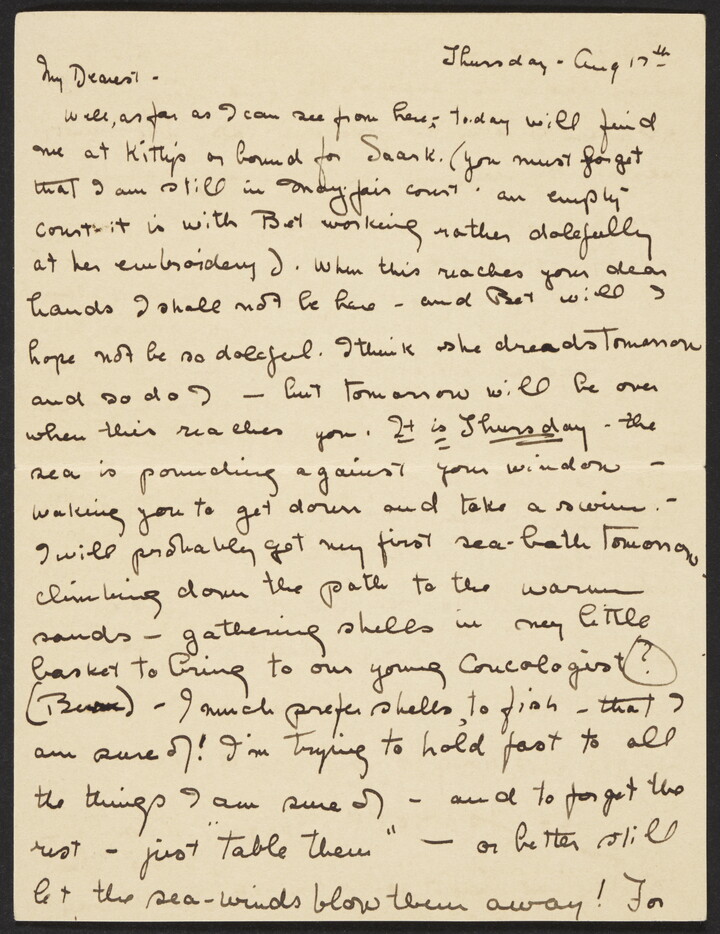 Thursday - Aug 17th
My Dearest -
Well, as far as I can see from here, today will find
me at Kitty's or bound for Saark. (you must forget
that I am still in Mayfair court - an empty
court - it is with Bet working rather dolefully
at her embroidery). When this reaches your dear
hands I shall not be here - and Bet will I
hope not be so doleful. I think she dreads tomorrow
and so do I - but tomorrow will be over
when this reaches you. It is Thursday - the
sea is pounding against your window -
waking you to get down and take a swim. -
I will probably get my first sea-bath tomorrow,
climbing down the path to the warm
sands - gathering shells in my little
basket to bring to our young Concologist (?)
- I much prefer shells, to fish - that I
am sure of! I'm trying to hold fast to all
the things I am sure of - and to forget the
rest - just "table them" - or better still
let the sea-winds blow them away! For